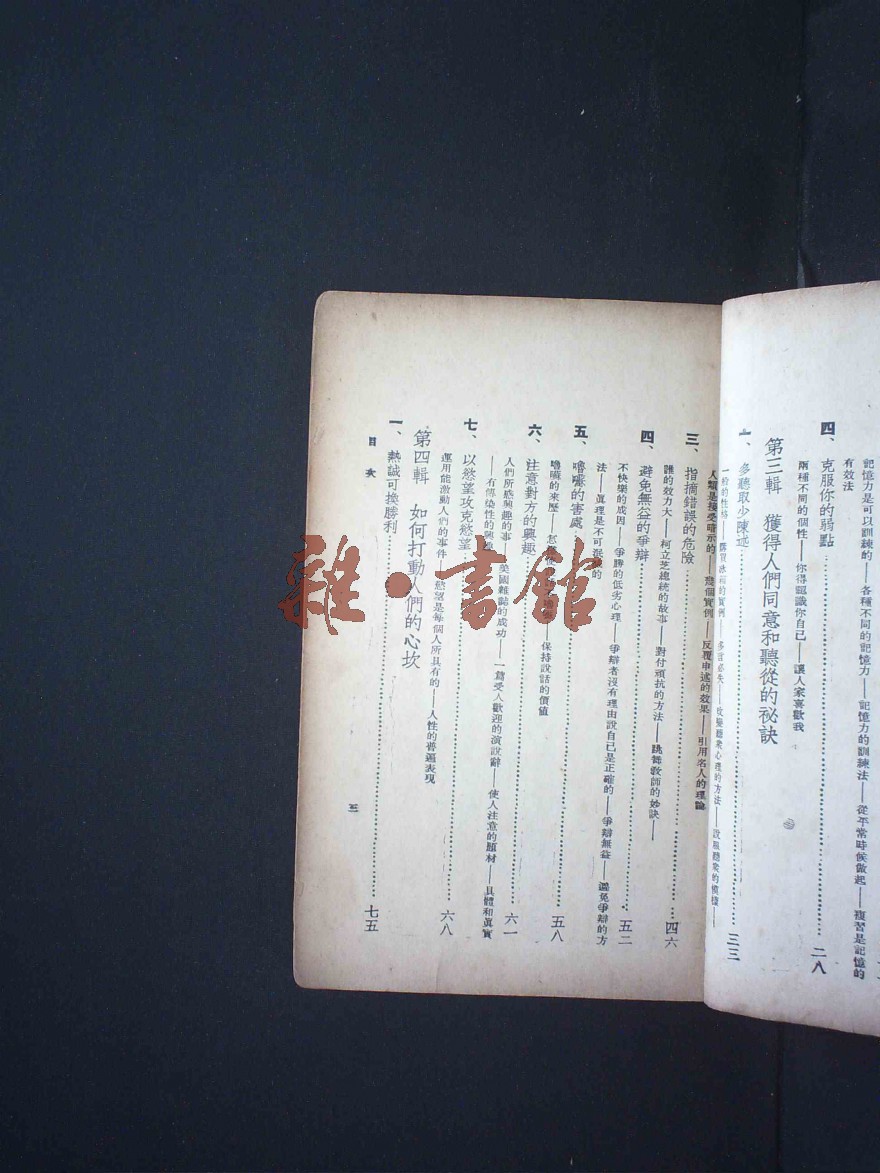 記憶力是可以訓練的——各種不同的記憶力——記憶力的訓練法——從平常時候做起——複習是記憶的
有效法
四、克服你的弱點……二八
兩種不同的個性——你得認識你自己——讓人家喜歡我
第三輯　獲得人們同意和聽從的祕訣
一、多聽取少陳述……三三
一般的性格——購買冰箱的實例——多言必失——改變聽衆心理的方法——說服聽衆的模樣——
人類是接受暗示的——幾個實例——反覆申述的效果——引用名人的理論
三、指摘錯誤的危險……四六
誰的效力大——柯立芝總統的故事——對付頑抗的方法——跳舞教師的妙訣——
四、避免無益的爭辯……五二
不快樂的成因——爭勝的低劣心理——爭辯者沒有理由說自己是正確的——爭辯無益——避免爭辯的方
法——眞理是不可
五、嚕囌的害處……五八
嚕囌的來歷——保持說話的價值
六、注意對方的興趣……六一
人們所感興趣的事——美國雜誌的成功——一篇受人歡迎的演說辭——使人注意的題材——具體和眞實
——有傳染性的興趣
七、以慾望攻克慾望……六八
運用能激動人們的事件——慾望是每個人所具有的——人性的普遍表現
第四輯　如何打動人們的心坎
一、熱誠可換勝利……七五
目次
三
雜·書館